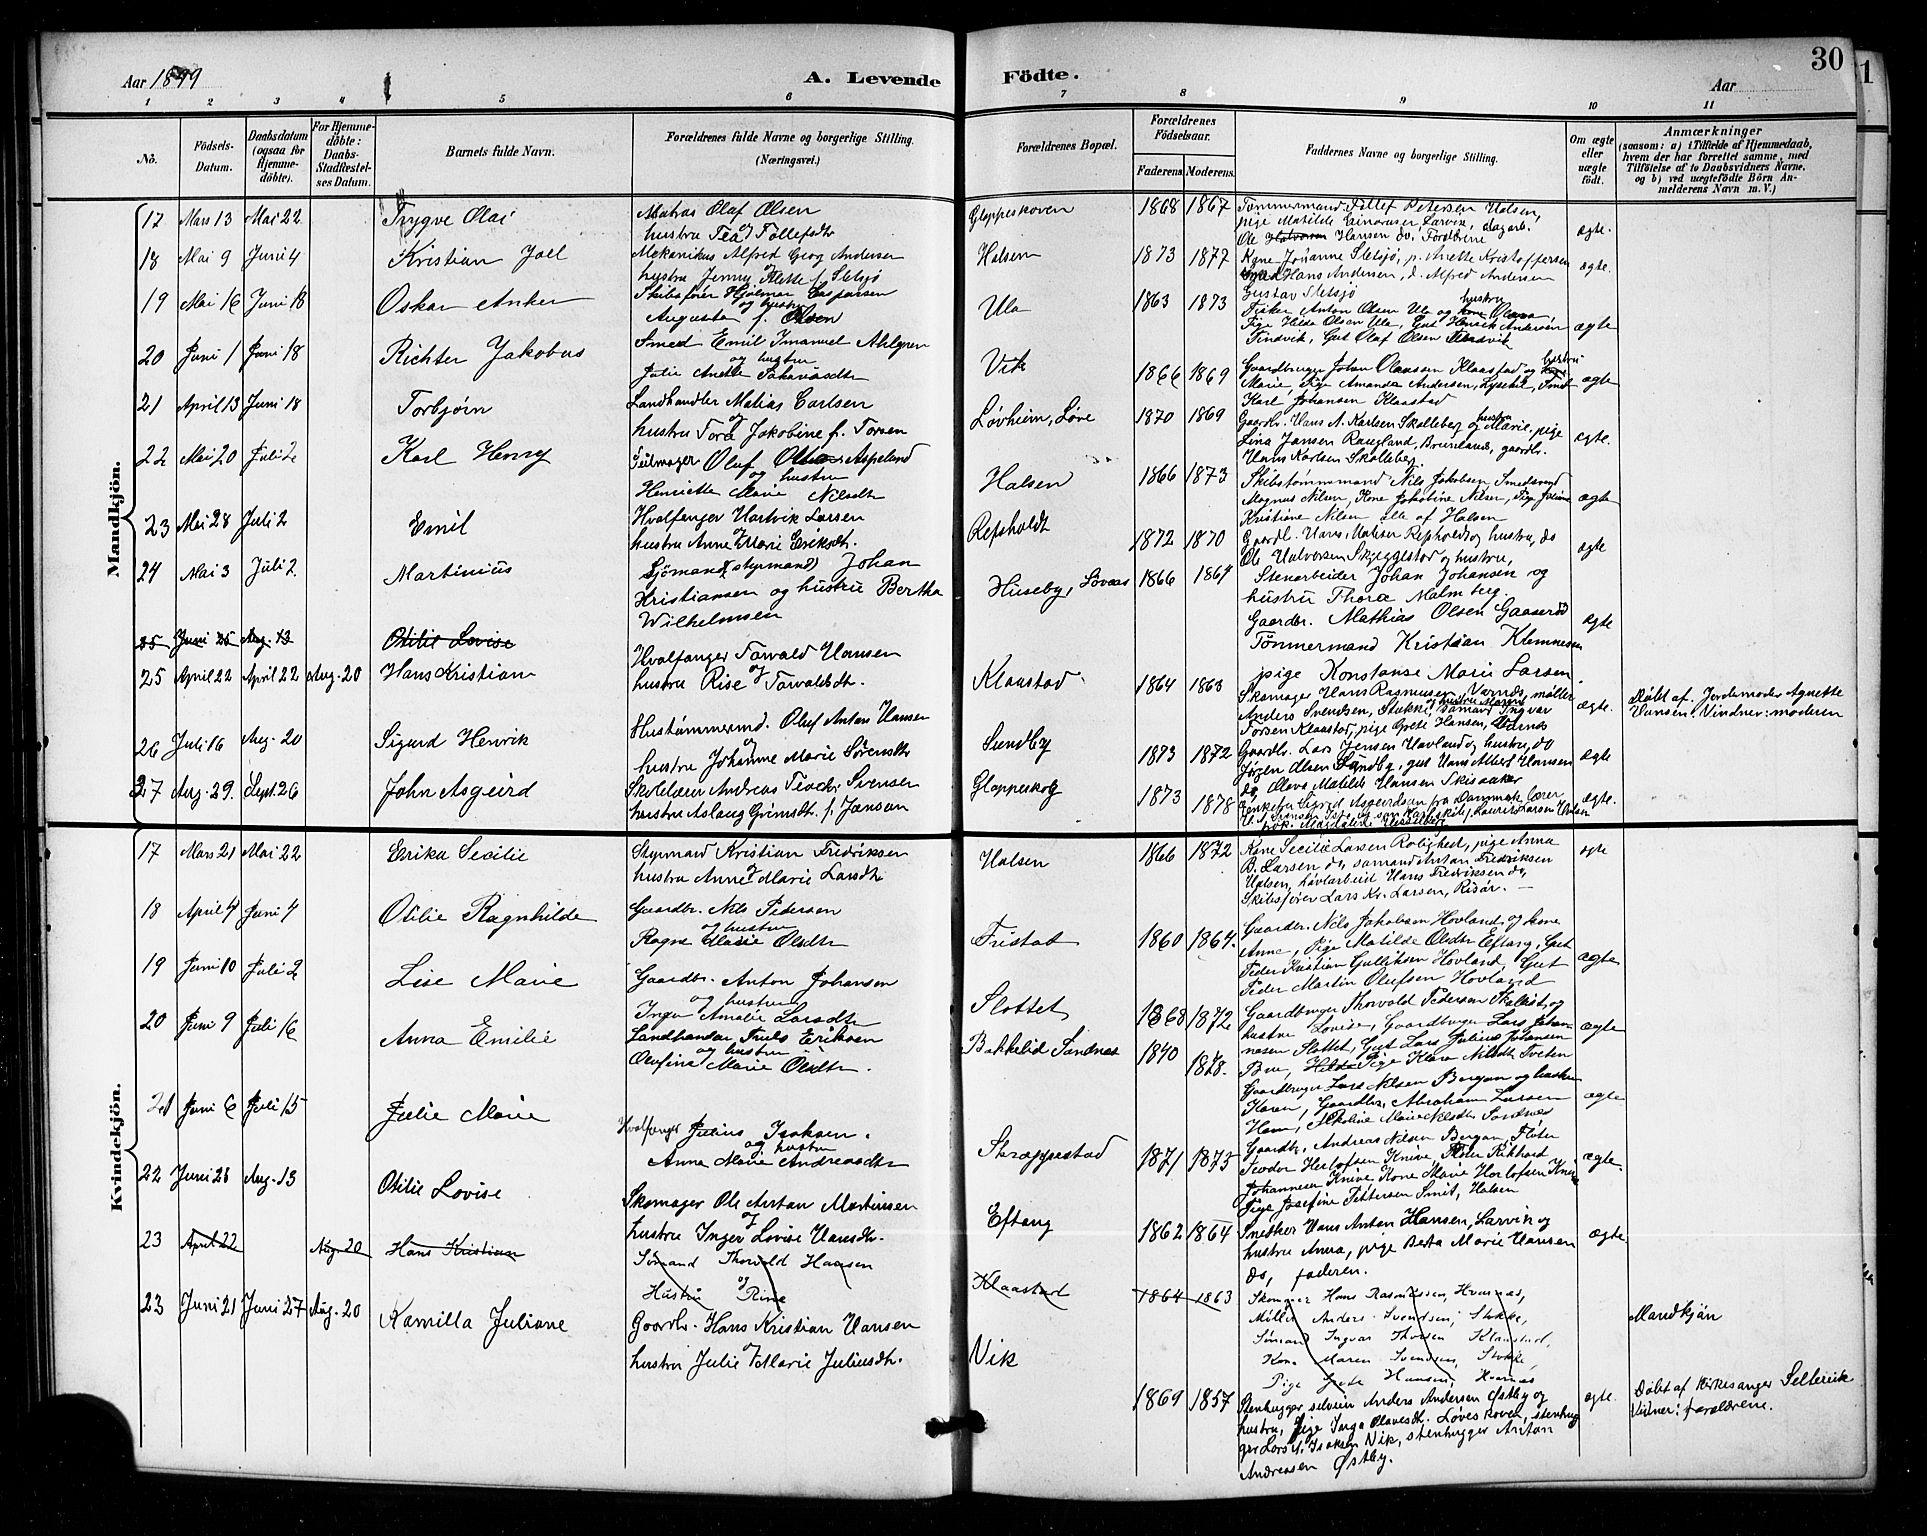 30
Aar 1899
A. Levende Födte.
Aar
1 2 3 4 5 6 7 8 9 10 11
No.
Födsels-Datum.
Daabsdatum (ogsaa for Hjemme-döbte).
For Hjemme-döbte: Daabs-Stadfæstel-ses Datum.
Barnets fulde Navn.
Forældrenes fulde Navne og borgerlige Stilling. (Næringsvei.)
Forældrenes Bopæl.
Forældrenes Födselsaar.
Faderens.
Moderens.
Faddernes Navne og borgerlige Stilling.
Om ægte eller uægte födt.
Anmærkninger
(saasom: a) i Tilfælde af Hjemmedaab, hvem der har forrettet samme, med Tilföielse af to Daabsvidners Navne, og b) ved uægtefödte Börn An-melderens Navn m. V.)
Mandkjön.
17 Mars 13 Mai 22 Trygve Olai
Matros Olaf Olsen
hustru Tea Tollefsdtr
Gloppeskoven 1868 1867
pige Matilde Einarsen, Larvik, dagarb.
ægte.
18 Mai 9 Juni 4 Kristian Joel
Mekanikus Alfred Georg Andersen
hustru Jenny Elette f. Sletsjö
Halsen 1873 1877
Kone Johanne Sletsjö, p. Anette Kristoffersen
Hans Andersen, d. Alfred Andersen
Gustav Sletsjö
ægte.
19 Mai 16 Juni 18 Oskar Anker
Skibsförer Hjalmar Caspersen
og hustru
Augusta f. Olsen
Ula 1863 1873
Fisker Anton Olsen Ula og hustru Olava,
Pige Hilda Olsen Ula, Gut Henrik Andersen
Tindvik, Gut Olaf Olsen Tindvik
ægte
20 Juni 1 Juni 18 Richter Jakobus
Smed Emil Imanuel Ahlgren
og hustru
Julie Anette
Vik 1866 1869
Gaardbruger Johan Olaussen Klaastad og hustru
Marie, Pige Amanda Andersen, Lysekil,
Karl Johansen Klaastad
ægte
21 April 13 Juni 18 Torbjörn
Landhandler Matias Carlsen
og
hustru Tora Jakobine f. Torsen
Lövheim, Löve 1870 1869
Gaardbr. Hans A. Karlsen Skalleberg og hustru Marie, pige
Lina Jansen Raugland, Brunlanæs, gaardbr.
Hans Karlsen Skalleberg.
ægte.
22 Mai 20 Juli 2 Karl Henry
Olaf Aspelund
og hustru
Henriette Marie Nilsdtr
Halsen 1866 1873
Skibstömmermand Nils Jakobsen Smedsrud
Magnus Nilsen, Kone Jakobine Nilsen, Pige
Kristiane Nilsen alle af Halsen
ægte
23 Mai 28 Juli 2 Emil
Hvalfanger Hartvik Larsen
og
hustru Anne Marie Eriksdtr.
Repsholdt 1872 1870
Gaardb. Hans Matisen Repholdt og hustru, do
Ole Halvorsen Skjeggestad og hustru,
ægte
24 Mai 3 Juli 2 Martinius
Sjömand (styrmand) Johan
Kristiansen og hustru Bertha
Wilhelmsen
Huseby, Lövaas 1866 1867
Stenarbeider Johan Johansen og
hustru Thora Malmberg.
Gaardbr. Mathias Olsen Gaaseröd
Tömmermand Kristian Klemmesen
pige Konstanse Marie Larsen
ægte
25 Juni 25 Aug. 13 Otilie Lovise
25 April 22 April 22 Aug. 20 Hans Kristian
Hvalfanger Torvald Hansen
og
hustru Rise Torvaldsdtr.
Klaastad 1864 1863
Skomager Hans Rasmussen, Varnæs, møller
Anders Svendsen, Stokke, og hustru Maren, sömand Ingvar
Torsen Klaastad, pige Grete Hansen, Varnæs
ægte.
Döbt af Jordemoder Agnette
Hansen. Vidner: moderen
26 Juli 16 Aug. 20 Sigurd Henrik
Hustömmermd. Oluf Anton Hansen
og
hustru Johanne Marie Sörensdtr
Sundby 1873 1872
Gaardbr. Lars Jensen Havland og hustru, do
Jörgen Olsen Sundby, gut Hans Albert Hansen
do, Olava Matilde Hansen Skisaaker
ægte
27 Aug. 29. Sept. 26 John Asgeird
Skolelærer Andreas Teodor Svensen
hustru Aslaug Grimsdt. f. Janson
Gloppeskog 1873 1878
Enkefru Sigrid Asgeirdsen fra Danmark, lærer
ægte.
Kvindekjön.
17 Mars 21 Mai 22 Erika Secilie
Styrmand Kristian Fredriksen
og
hustru Anne Marie Larsdtr
Halsen 1866 1872
Kone Secilie Larsen Rolighed, pige Anna
B. Larsen do, sømand Anton Fredriksen
Halsen, hövlarbeid Hans Fredriksen do,
Skibsförer Lars Kr. Larsen, Risör. —
ægte
18 April 4 Juni 4 Otilie Ragnhilde
Gaardbr. Nils Pedersen
og hustru
Ragna Marie Olsdtr
Fristad 1860 1864.
Gaardbr. Nils Jakobsen Hovland og kone
Anne, Pige Matilde Olsdtr Eftang, Gut
Peder Kristian Gulliksen Hovland, Gut
Peder Martin Olufsen Hovland
ægte
19 Juni 10 Juli 2 Lise Marie
Gaardbr. Anton Johansen
og hustru
Inga Amalie Larsdtr
Slottet 1868 1872
Gaardbruger Thorvald Pedersen Skalist og
hustru Lovise, Gaardbruger Lars Johan-
nesen Slottet, Gut Lars Julius Johansen
Bue, Pige Klara Nilsdtr Tveten
ægte
20 Juni 9 Juli 16 Anna Emilie
Landhandler Truls Eriksen
og hustru
Olufina Marie Olsdtr.
Bakkelid Sandnæs 1840 1878.
Gaardbruger Lars Nilsen Bergan og hustru
Karen, Gaardbr. Abraham Larsen
Hem, Nikoline Marie Nilsdtr Sandnæs
ægte
21 Juni 6 Juli 15 Julie Marie
Hvalfanger Julius Isaksen.
og hustru
Anna Marie Andreasdtr
Skræppestad 1871 1873
Gaardbr. Andreas Nilsen Bergan,
Teodor Herlofsen Knive, Rikhard
Johannesen Knive Kone Marie Herlofsen Knive
Pige Josefine Pettersen Smit, Halsen
ægte.
22 Juni 28 Aug. 13 Otilie Lovise
Skomager Ole Anton Martinsen
og
hustru Inger Lovise Hansdtr.
Eftang 1862 1864
Snedker Hans Anton Hansen, Larvik og
hustru Anna, pige Berta Marie Hansen
do, faderen.
ægte
23 April 22 Aug. 20 Hans Kristian
Sømand Thorvald Hansen
og
Hustru Rine
Klaastad 1864 1863
Skomager Hans Rasmussen, Hvarnæs,
Möller Anders Svendsen, Stokke,
Sömand Ingvar Thorsen Klaastad,
Kone Maren Svendsen, Stokke,
Pige Grete Hansen, Hvarnæs
Mandkjön
23 Juni 21 Juni 27 Aug. 20 Kamilla Juliane
Gaardbr. Hans Kristian Hansen
og
hustru Julie Marie Juliusdtr.
Vik 1869 1857
Stenhugger Anders Andersen Østby og
hustru, Pige Inga Olavesdt. Löveskoven, stenhug
ger Lars A. Isaksen Vik, stenhugger Anton
Andreasen Østby.
ægte.
Döbt af Kirkesanger Seltevik
Vidner: forældrene.